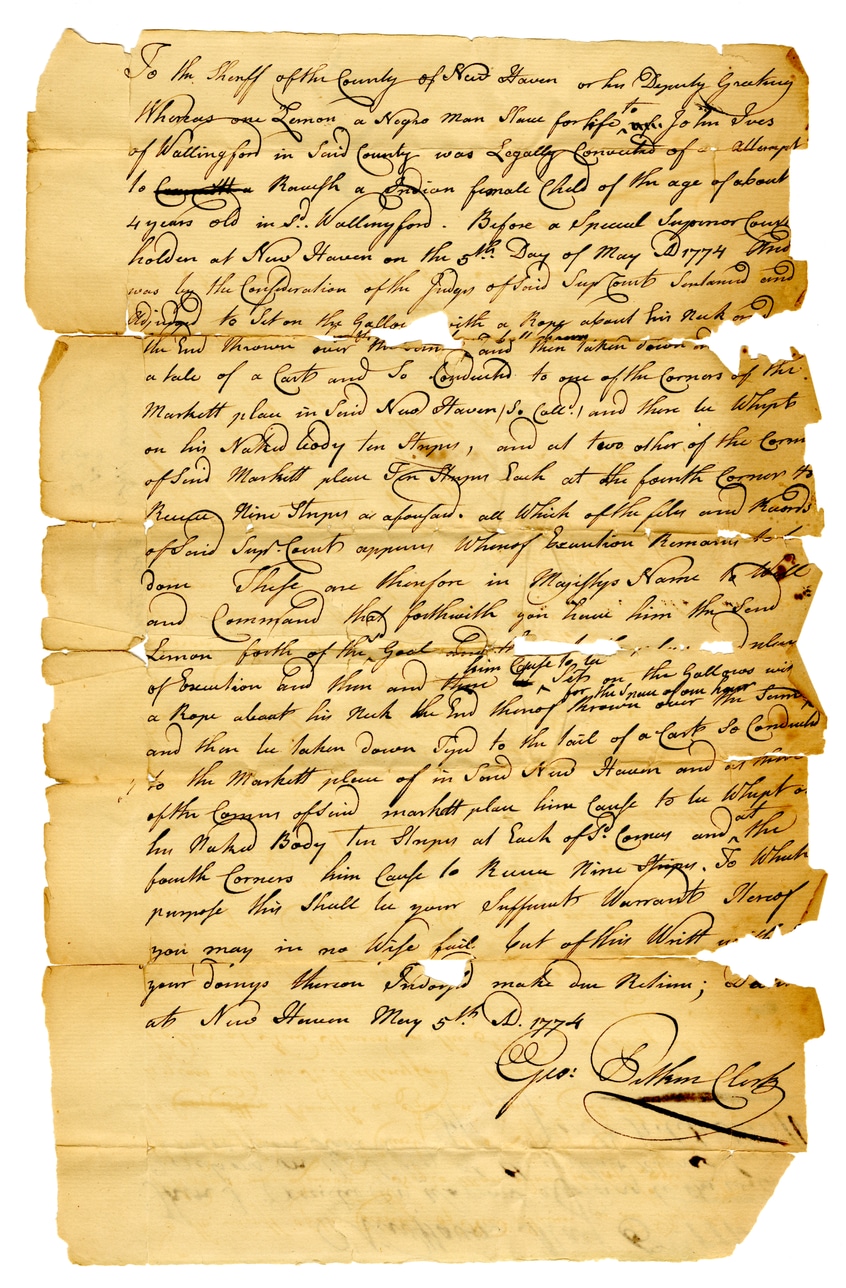 To the Sheriff of the County of New Haven or his Deputy Greeting
Whereas one Lemon a Negro man Slave for life to John Ives
of Wallingford in Said County was Legally Convicted of a Attempt
to a Ravish a Indian female Child of the age of about
4 years old in Sd. Wallingford. Before a Special Superior Court
holden at New Haven on the 5th Day of May AD 1774 And
was by the Consideration of the Judges of Said Supr Court Sentenced and
Adjudged to Set on the Gallo with a Rope about his Neck and
the End thrown over the and then taken down
a tale of a Cart and So Conducted to one of the Corners of the
Markett place in Said New Haven (So Call'd) and there be Whipt
on his Naked body ten Stripes, and at two other of the Corn
of Said Markett place Ten Stripes Each at the fourth Corner to
Receive Nine Stripes as aforesaid. all Which of the files and Records
of Said Supr. Court appears Whereof Execution Remains to be
done These are therefore in Majistys Name to Will
and Command that forthwith you have him the Said
Lemon forth of the sd Goal and place
him Cause to be
of Execution and then and there Set on the Gallows wit
for the Space of one hour
a Rope about his Neck the End thereof thrown over the Same
and then be taken down Tyd to the tail of a Cart So Conducted
to the Markett place of in Said New Haven and at three
of the Corners of Said markett place him Cause to be Whipt o
his Naked Body ten Stripes at Each of Sd Corners and at the
fourth Corners him Cause to Receive Nine Stripes. To Which
purpose this Shall be your Sufficient Warrant Hereof
you may in no Wise fail but of this Writt with
your doings thereon Indors'd make due Return; Da
at New Haven May 5th AD. 1774
Geo: Pitkin Clerk